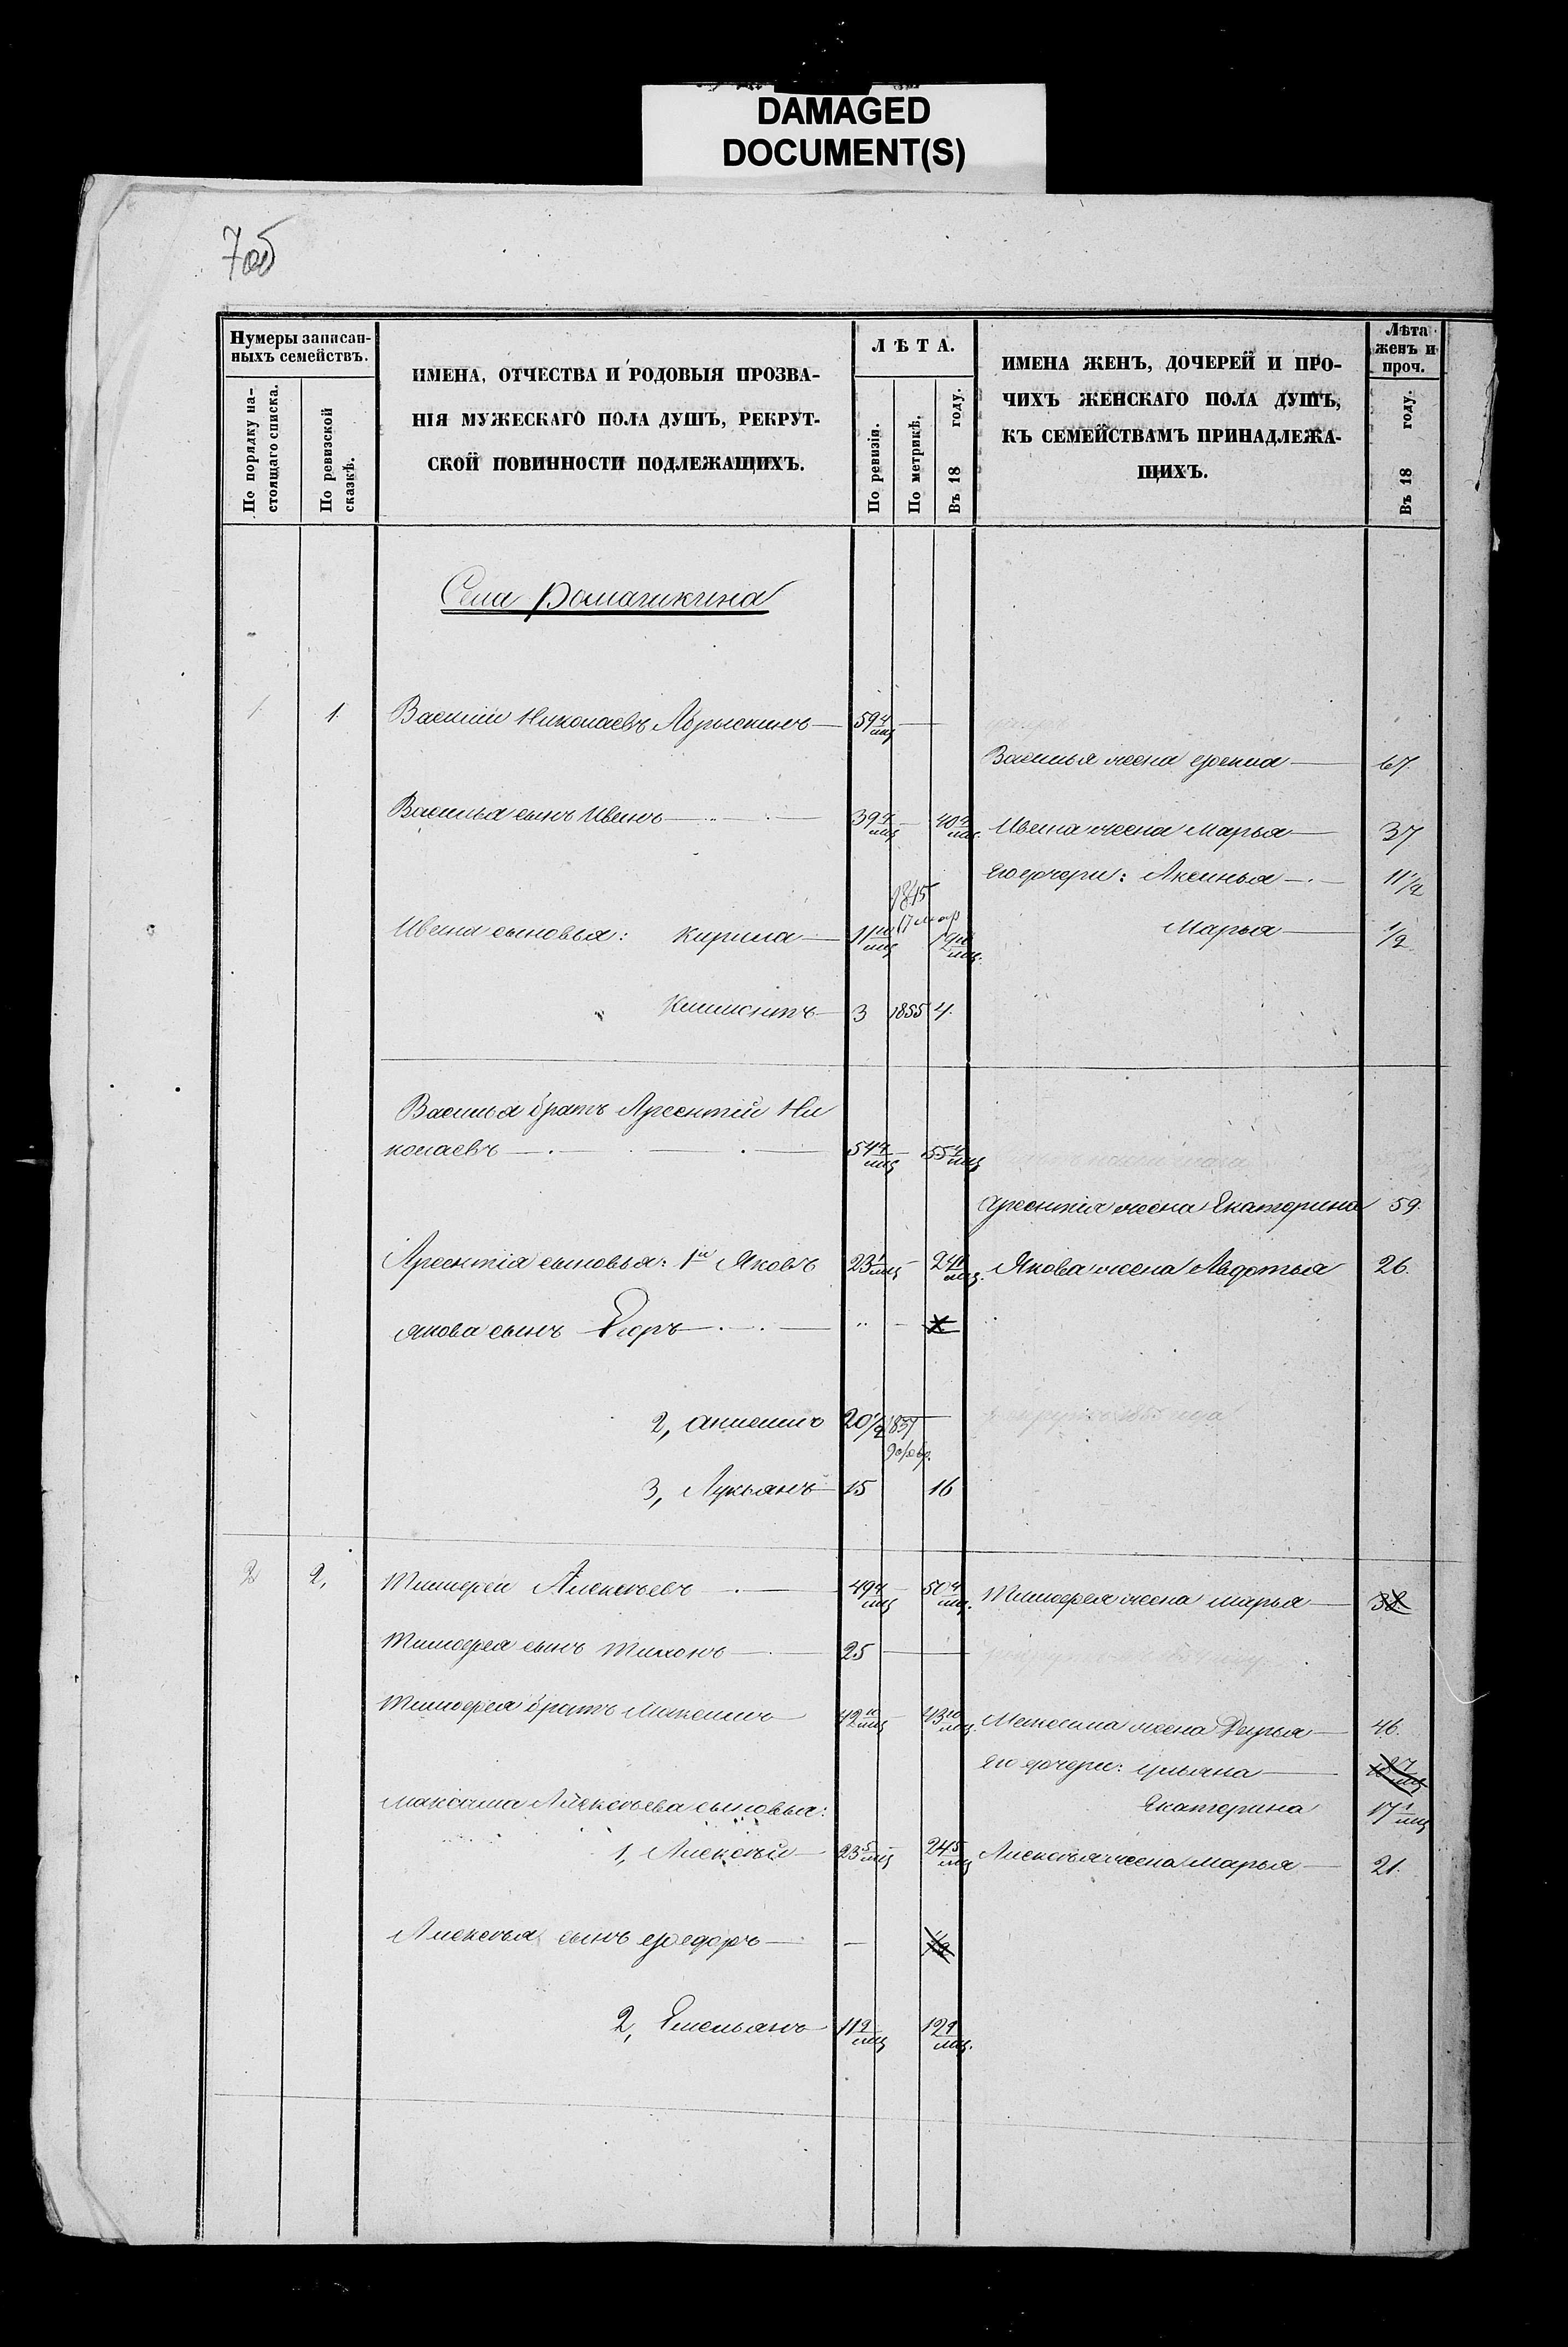 DAMAGED
DOCUMENT(S)
7об
Нумеры записан-
ныхъ семействъ.
По порядку на-
стоящаго списка.
По ревизской
сказкѣ.
ИМЕНА, ОТЧЕСТВА И РОДОВЫЯ ПРОЗВА-
НІЯ МУЖЕСКАГО ПОЛА ДУШЪ, РЕКРУТ-
СКОЙ ПОВИННОСТИ ПОДЛЕЖАЩИХЪ.
ЛѢТА.
По ревизіи.
По метрикѣ.
Въ 18 году.
ИМЕНА ЖЕНЪ, ДОЧЕРЕЙ И ПРО-
ЧИХЪ ЖЕНСКАГО ПОЛА ДУШЪ,
КЪ СЕМЕЙСТВАМЪ ПРИНАДЛЕЖА-
ЩИХЪ.
Лѣта
женъ и
проч.
Въ 18 году.
Села Ромашкина
1 1. Василій Николаевъ Абрыскинъ — 59 4/мц —
Василья жена — 67.
Василья сынъ Иванъ — 39 4/мц — 40 4/мц. Ивана жена Марья — 37
Его дочери: Аксинья — 11 1/2
1845
17 мар
Ивана сыновья: Кирила — 11 10/мц 12 10/мц. Марья — 1/2
Климонтъ — 3 1855 4.
Василья братъ Арсентій Ни
колаевъ — 54 4/мц — 55 4/мц
Арсентія жена Екатерина 59.
Арсентія сыновья: 1й Яковъ 23 1/мц — 24 1/мц. Якова жена Авдотья 26.
Якова сынъ Егоръ — " —
2, Анисимъ 20 1/2 1837 —
3, Лукьянъ 15 16
2 2, Тимофей Алексѣевъ — 49 4/мц — 50 4/мц. Тимофея жена Марья — 38
Тимофея сынъ Тихонъ — 25 —
Тимофея братъ Максимъ — 42 10/мц — 43 10/мц. Максима жена Дарья — 46.
Его дочери: Ульяна —
Максима Алексѣева сыновья: Екатерина 17 1/мц
1, Алексѣй — 23 5/мц — 24 5/мц Алексѣя жена Марья — 21.
Алексѣя сынъ Федоръ — — 1/2
2, Емельянъ — 11 9/мц 12 9/мц.